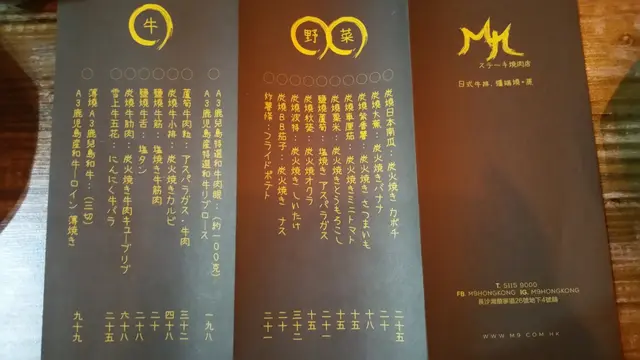 牛
A3鹿兒島特選和牛肉眼：（約100克）
A3鹿児島産特選和牛リブロース 一九八
蘆筍牛肉粒：アスパラガス 牛肉 三十二
炭燒牛小排：炭火焼きカルビ 四十八
鹽燒牛筋：塩焼き牛筋肉 二十
鹽燒牛舌：塩タン 二十八
炭燒牛肋肉：炭火焼き牛肉キューブリブ 六十八
雪上牛五花：にんにく牛バラ 二十五
薄燒A3鹿兒島和牛：（三切）
A3鹿児島産和牛ーロイン 薄焼き 九十九
野菜
炭燒日本南瓜：炭火焼き カボチ 二十五
炭燒大蕉：炭火焼きバナナ 二十
炭燒紫番薯：炭火焼き さつまいも 十八
炭燒車厘茄：炭火焼きミニトマト 十五
炭燒粟米：炭火焼きとうもろこし 二十一
鹽燒蘆筍：塩焼き アスパラガス
炭燒秋葵：炭火焼きオクラ 十五
炭燒 炭火焼き しいたけ 三十二
炭燒BB茄子：炭火焼き ナス
炸薯條：フライドポテト 二十一
M9
ステーキ燒肉店
日式牛丼, 爐端燒+蒸
T. 5115 9000
FB. M9HONGKONG IG. M9HONGKONG
長沙灣順寧道26號地下4號舖
WWW.M9.COM.HK